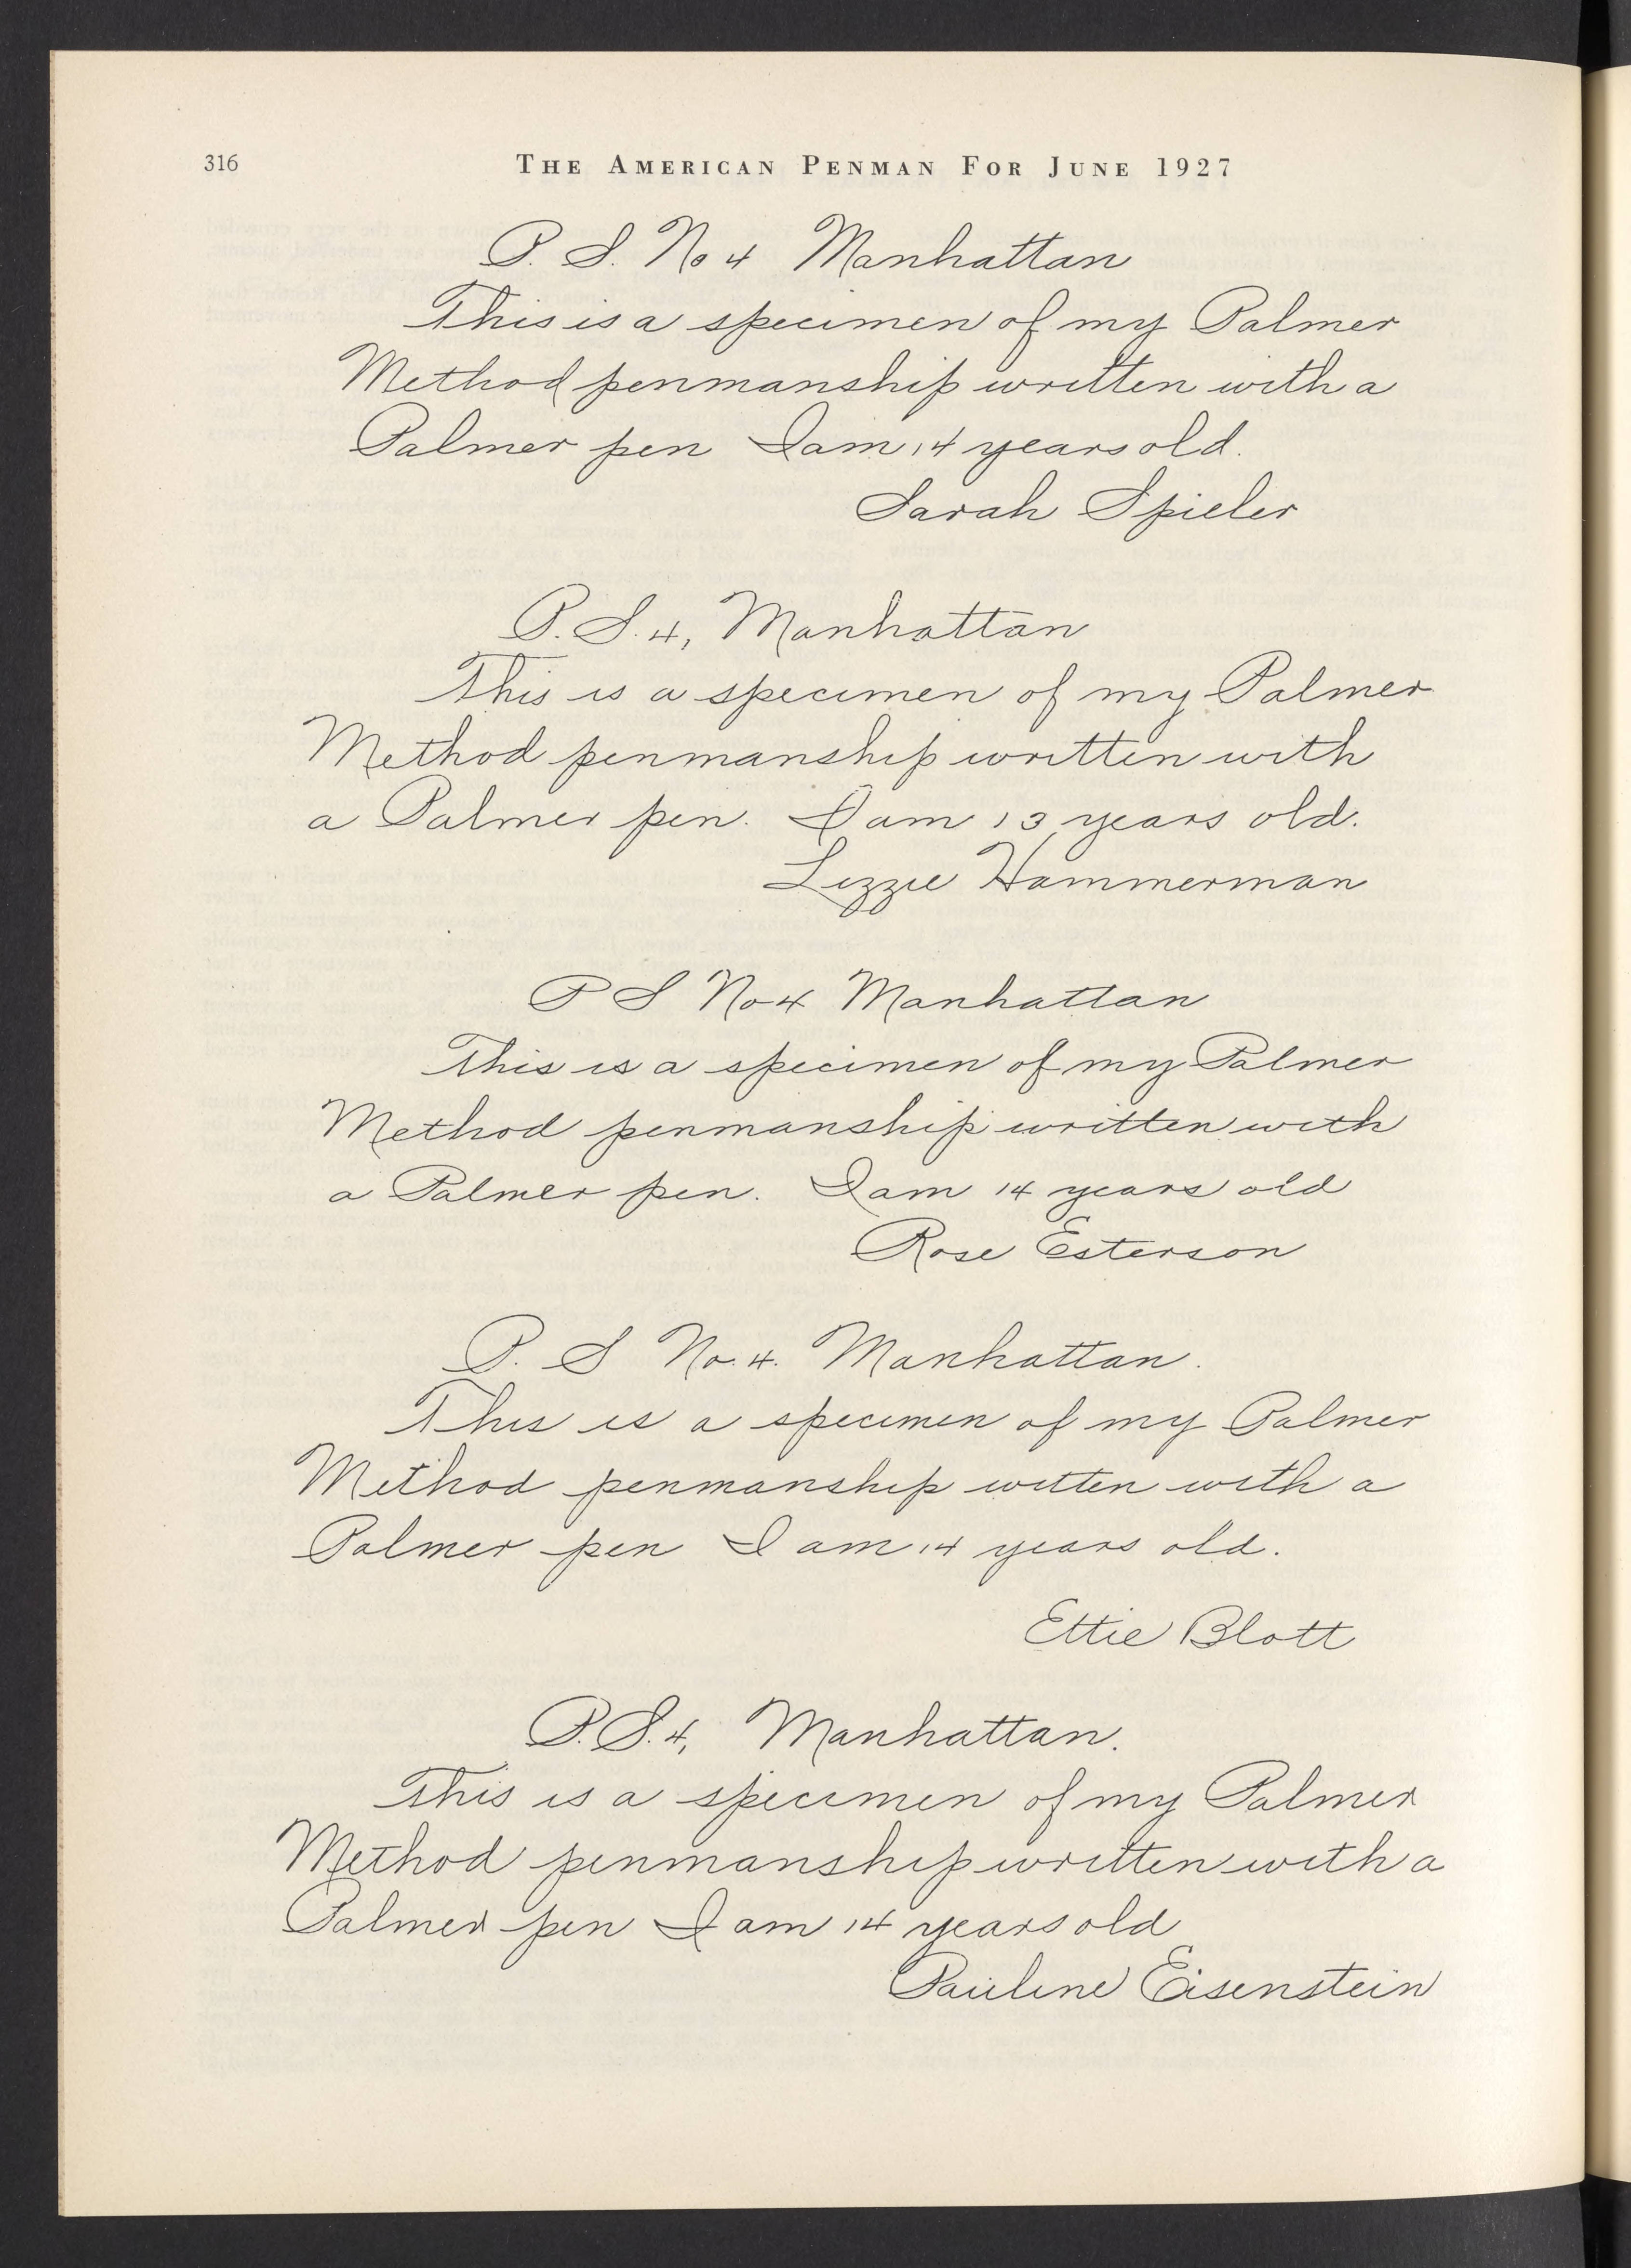 316
THE AMERICAN PENMAN FOR JUNE 1927
P. S. No 4 Manhattan
This is a specimen of my Palmer
Method penmanship written with a
Palmer pen I am 14 years old.
Sarah Spieler
P. S. 4, Manhattan
This is a specimen of my Palmer
Method penmanship written with
a Palmer pen. I am 13 years old.
Lizzie Hammerman
P S No 4 Manhattan
This is a specimen of my Palmer
Method penmanship written with
a Palmer pen. I am 14 years old
Rose Esterson
P. S No. 4. Manhattan.
This is a specimen of my Palmer
Method penmanship witten with a
Palmer pen I am 14 years old.
Ettie Blott
P. S. 4, Manhattan.
This is a specimen of my Palmer
Method penmanship written with a
Palmer pen I am 14 years old
Pauline Eisenstein